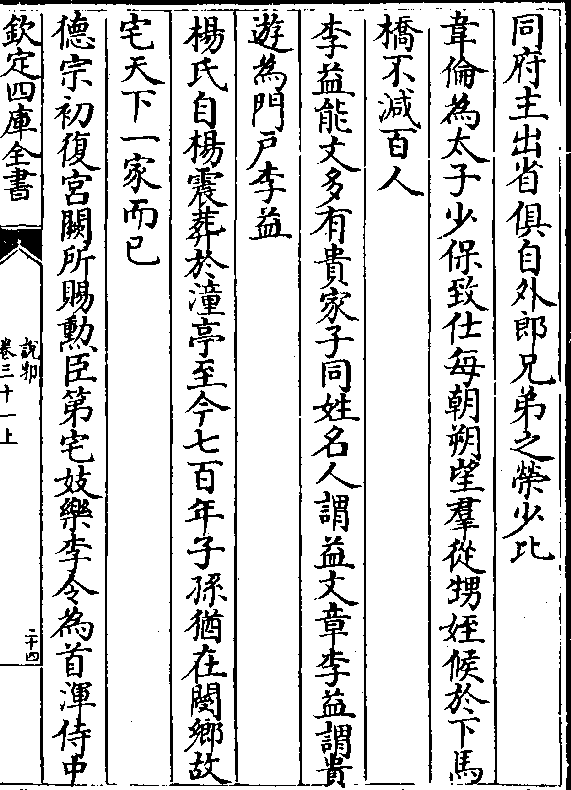 同府主出省俱自外郎兄弟之榮少比
韋倫為太子少保致仕每朝朔望羣從甥姪候於下馬
橋不減百人
李益能文多有貴家子同姓名人謂益文章李益謂貴
遊為門戸李益
楊氏自楊震葬於潼亭至今七百年子孫猶在閿鄉故
宅天下一家而已
德宗初復宮闕所賜勲臣第宅妓樂李令為首渾侍中
欽定四庫全書
說郛
卷三十一上
二十四